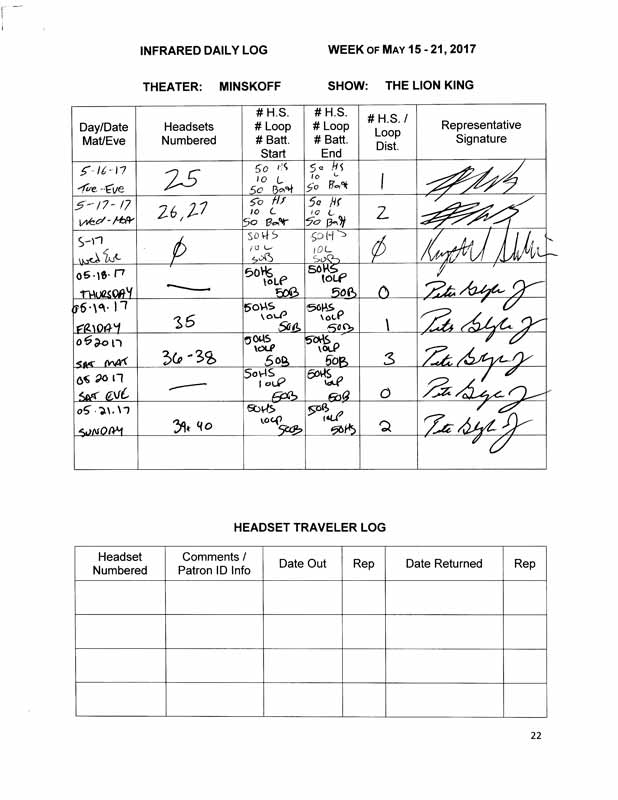 INFRARED DAILY LOG WEEK OF MAY 15 - 21, 2017
THEATER: MINSKOFF SHOW: THE LION KING
Day/Date
Mat/Eve
Headsets
Numbered
# H.S.
# Loop
# Batt.
Start
# H.S.
# Loop
# Batt.
End
# H.S. /
Loop
Dist.
Representative
Signature
5-16-17
Tue-Eve
25
50 HS
10 L
50 Batt
50 HS
10 L
50 Batt
1
5-17-17
Wed-Mat
26, 27
50 HS
10 L
50 Batt
50 HS
10 L
50 Batt
2
5-17
Wed Eve
ϕ
50HS
10L
50B
50HS
10L
50B
ϕ
05.18.17
THURSDAY
—
50HS
10LP
50B
50HS
10LP
50B
0
05.19.17
FRIDAY
35
50HS
10LP
50B
50HS
10LP
50B
1
052017
SAT MAT
36-38
50HS
10LP
50B
50HS
10LP
50B
3
05 2017
SAT EVE
—
50HS
10LP
50B
50HS
10LP
50B
0
05.21.17
SUNDAY
39+40
50HS
10LP
50B
50B
10LP
50HS
2
HEADSET TRAVELER LOG
Headset
Numbered
Comments /
Patron ID Info
Date Out
Rep
Date Returned
Rep
22